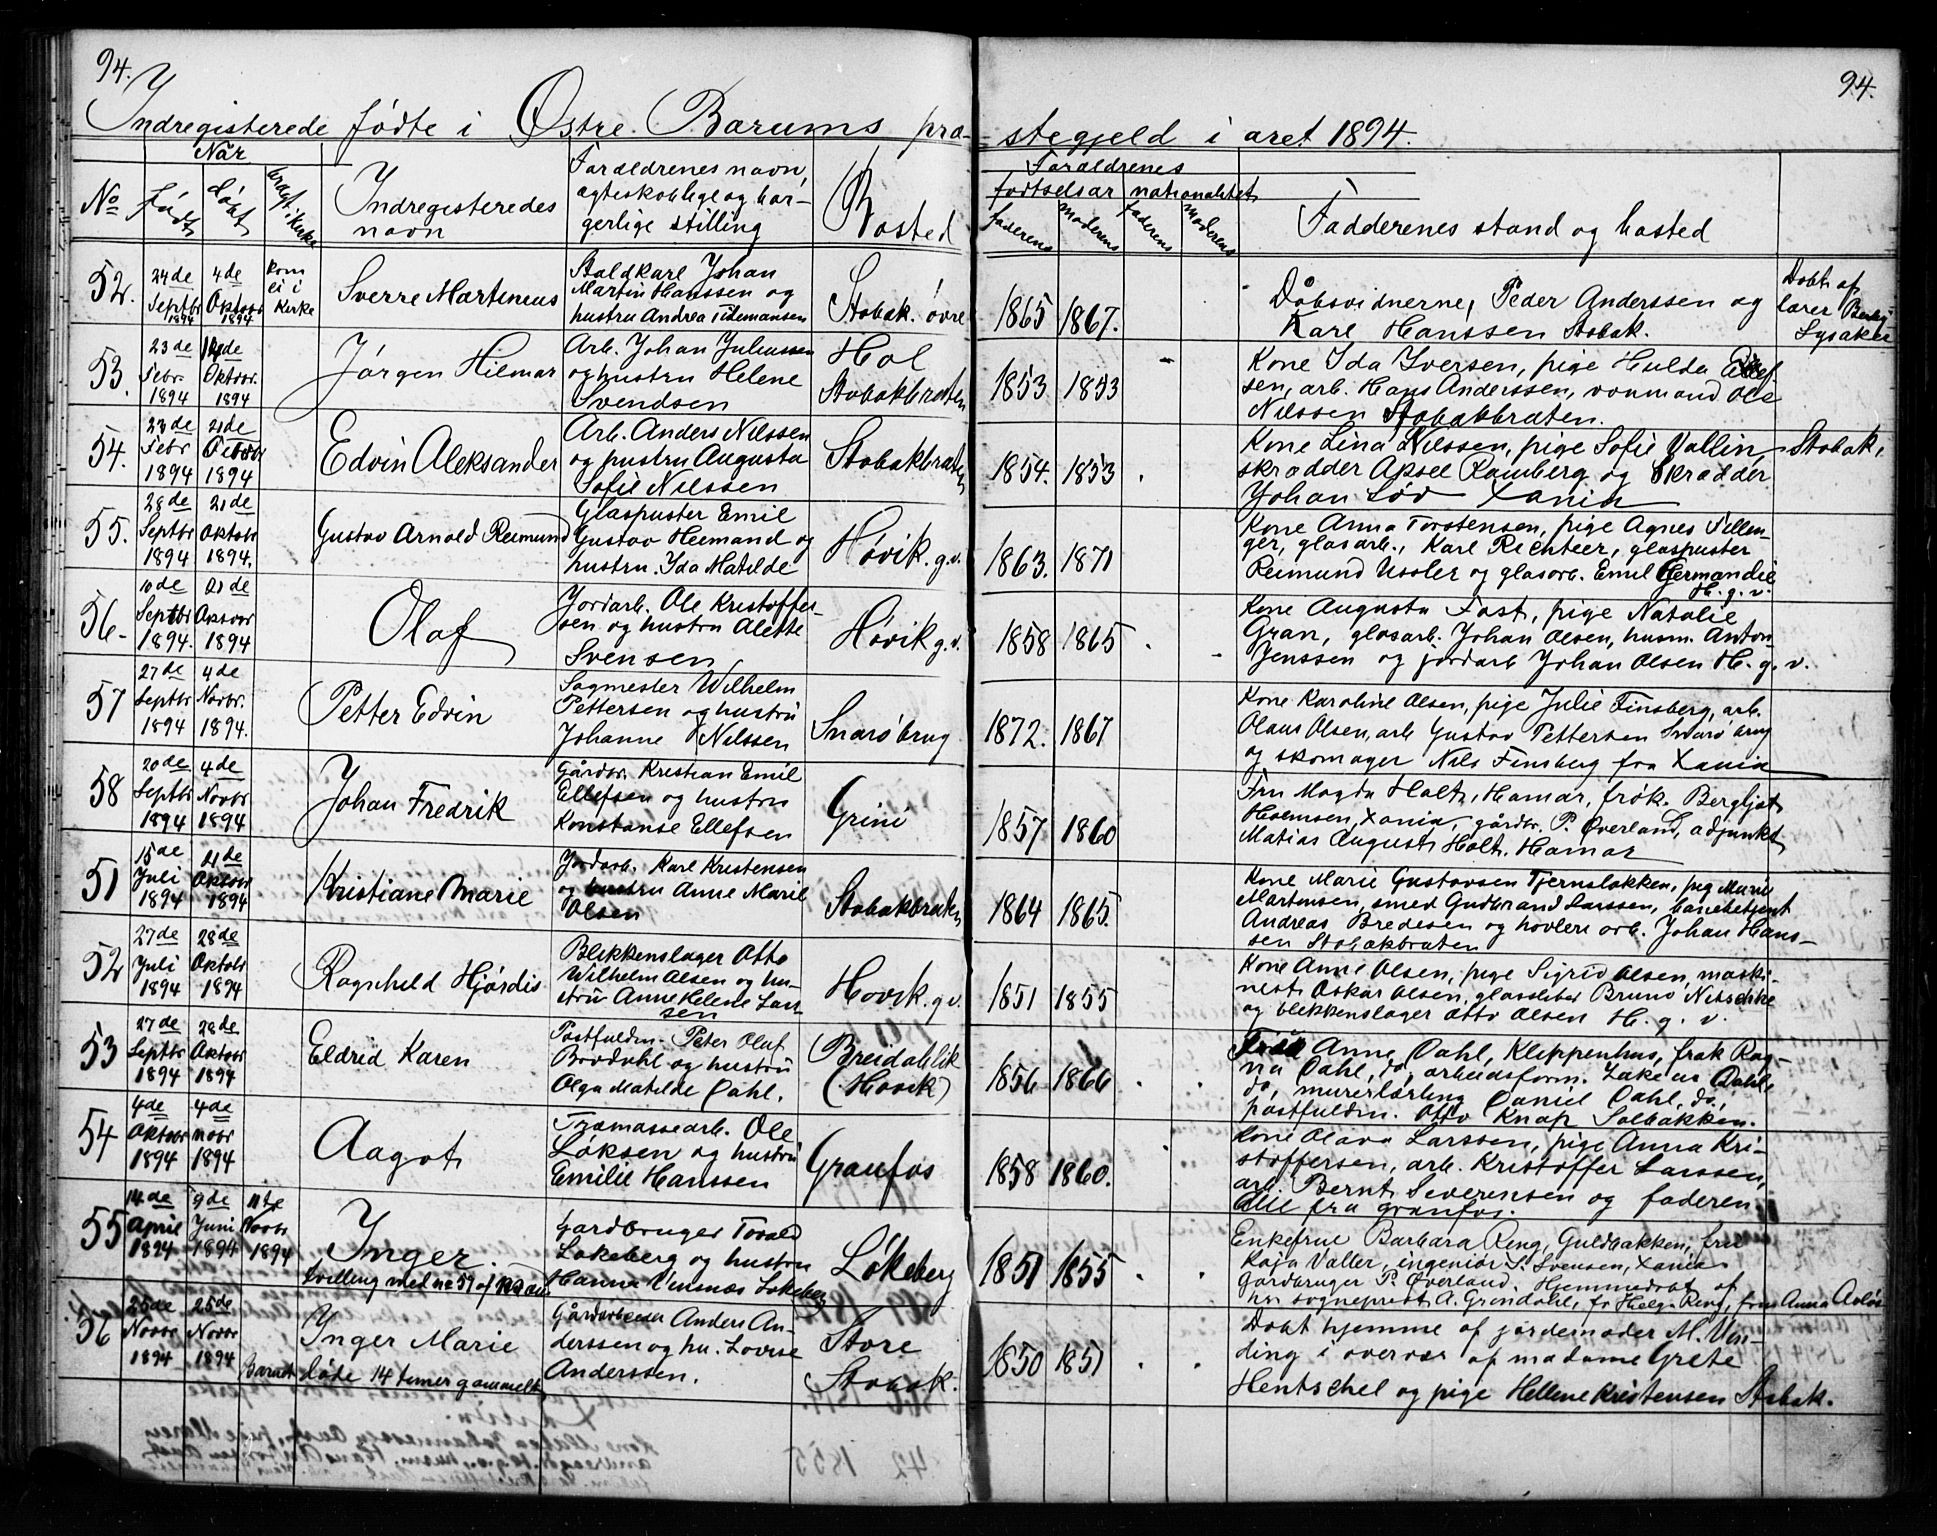 94.
94.
Indregisterede fødte i Østre Bærums præ-
stegjeld i året 1894.
Når
No
født
døbt
bragt i kirke
Indregisteredes
navn
Forældrenes navn,
ægteskablige og bor-
gerlige stilling
Bosted
Forældrenes
fødselsår nationalitet
faderens
moderens
faderens
moderens
Fadderenes stand og bosted
52.
24de
Septbr
1894
4de
Oktobr
1894
kom
ei i
kirke
Sverre Martenius
Staldkarl Johan
Martin Hanssen og
hustru Andrea Tidemansen
Stabæk. øvre
1865 1867.
Døbsvidnerne, Peder Anderssen og
Karl Hanssen Stabæk.
Døbt af
lærer
Lysaker
53.
23de
Febr.
1894
14de
Oktobr.
1894
Jørgen Hilmar
Arb. Johan Juliussen
og hustru Helene
Svendsen
Hol
Stabækbråten
1853 1853
Kone Ida Iversen, pige Hulda Ellef-
sen, arb. Hans Anderssen, vonmand Ole
Nilssen Stabækbråten.
54.
23de
Febr
1894
21de
Oktobr
1894
Edvin Aleksander
Arb. Anders Nilssen
og hustru Augusta
Sofie Nilssen
Stabækbråten
1854. 1853
Kone Lina Nilssen, pige Sofie Vallin, Stabæk,
skrædder Aksel Ramberg og Skrædder
Johan Löv Xania
55.
28de
Septbr
1894
21de
Oktobr
1894.
Gustav Arnold Reimund
Glaspuster Emil
Gustav Heimand og
hustru. Ida Matilde
Høvik. g.v.
1863. 1871
Kone Anna Torstensen, pige Agnes Fellen-
ger, glasarb., Karl Richteer, glaspuster
Reimund Ussler og glasarb. Emil Germandie
H. g. v.
56-
10de
Septbr
1894.
21de
Oktobr
1894
Olaf
Jordarb. Ole Kristoffer-
sen og hustru Alette
Svensen,
Høvik g.v.
1858 1865
Kone Augusta Fast, pige Natalie
Gran, glasarb. Johan Olsen, husm. Anton
Jenssen og jordarb Johan Olsen H. g. v.
57
27de
Septbr
1894
4de
Novbr.
1894.
Petter Edvin
Sagmester Wilhelm
Pettersen og hustru
Johanne Nilssen
Snarøbrug
1872. 1867
Kone Karoline Olsen, pige Julie Finsberg, arb.
Olaus Olsen, arb Gustav Pettersen Snarø brug
og skomager Nils Finsberg fra Xania
58
20de
Septbr
1894
4de
Novbr
1894
Johan Fredrik
Gårdbr. Kristian Emil
Ellefsen og hustru
Konstanse Ellefsen
Grini
1857 1860
Fru Magda Holt, Hamar, frøk. Bergljot
Holmsen, Xania, gårdbr. P. Øverland, adjunkt
Matias August Holt. Hamar
51
15de
Juli
1894
21de
Oktobr
1894
Kristiane Marie
Jordarb. Karl Kristensen
og hustru Anne Marie
Olsen
Stabækbråten
1864 1865.
Kone Marie Gustavsen Tjernsløkken, pig Marie
Martinsen, smed Gudbrand Larssen, banebetjent
Andreas Bredesen og høvleri arb. Johan Hans-
sen Stabækbråten
52
27de
Juli
1894
28de
Oktobr
1894
Ragnhild Hjørdis
Blikkenslager Otto
Wilhelm Olsen og hu-
stru Anne Helene Lars-
sen
Høvik. g.v.
1851 1855
Kone Anne Olsen, pige Sigrid Olsen, maski-
nest Oskar Olsen, glassliber Bruno Nitschke
og blikkenslager Otto Olsen H. g. v.
53
27de
Septbr
1894
28de
Oktobr
1894
Eldrid Karen
Postfuldm. Peter Oluf
Brodahl og hustru
Olga Matilde Dahl.
Breidablik
(Høvik)
1856 1866
Frøk Anne Dahl, Klippenhus, frøk Rag-
na Dahl, do, arbeidsform. Zakeus Dahl,
do, murerlærling Daniel Dahl, do,
postfuldm. Otto Knap Solbakken.
54
4de
Oktobr
1894
4de
novbr
1894
Aagot
Træmassearb. Ole
Løksen og hustru
Emilie Hanssen
Granfos
1858 1860.
Kone Olava Larssen, pige Anna Kri-
stoffersen, arb. Kristoffer Larssen,
arb Bernt Severensen og faderen
alle fra Granfos.
55
14de
April
1894
9de
Juni
1894
11te
Novbr
1894
Inger.
tvilling med ne 59 af
Gårdbruger Torald
Løkeberg og hustru
Hanna Vensnæs Løkeberg
Løkeberg
1851 1855
Enkefrue Barbara Ring, Guldbakken, fru
Kaja Valler, ingeniør S. Svensen, Xania
Gårdbruger P. Øverland. Hjemmedøbt af
hr sogneprest A. Grøndahl, fr Helga Ring, frøk Anna Avløs
56
25de
Novbr
1894
25de
Novbr
1894
Inger Marie
Barnet døde 14 timer gammelt
Gårdarbeider Anders An-
derssen og hu. Lovise
Anderssen.
Store
Stabæk.
1850 1851
Døbt hjemme af jordemoder M. Vin-
ding i overvær af madame Grete
Hentschel og pige Hellene Kristensen Stabæk.